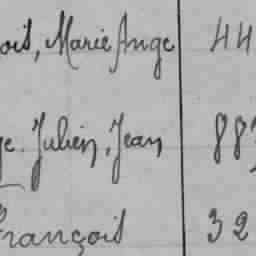 ois, Marie Ange 44
ge Julien, Jean 887
François 32